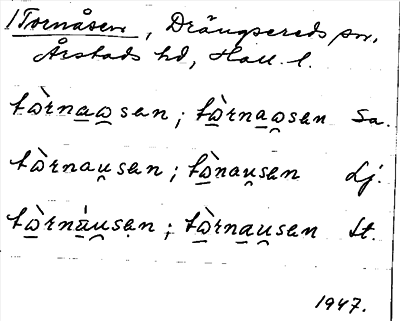 1 Tornåsen, Drängsereds sn.
Årstads hd, Hall. l.
tὼrnaωsən; tὼrnaωsən Sa.
tὼrnausən; tὼnausən Lj.
tὼrnáusən; tὼrnausən St.
1947.